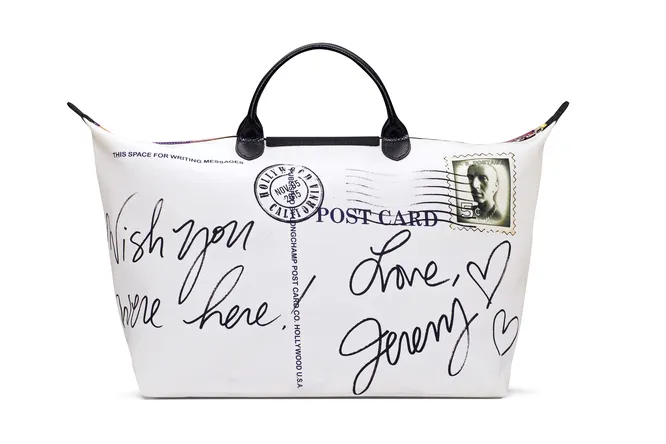 THIS SPACE FOR WRITING MESSAGES
HOLLYWOOD VINE
NOV 05
CALIFORNIA
POST CARD
5¢
Wish you
were here!
LONGCHAMP POST CARD CO. HOLLYWOOD U.S.A
Love,
Jeremy